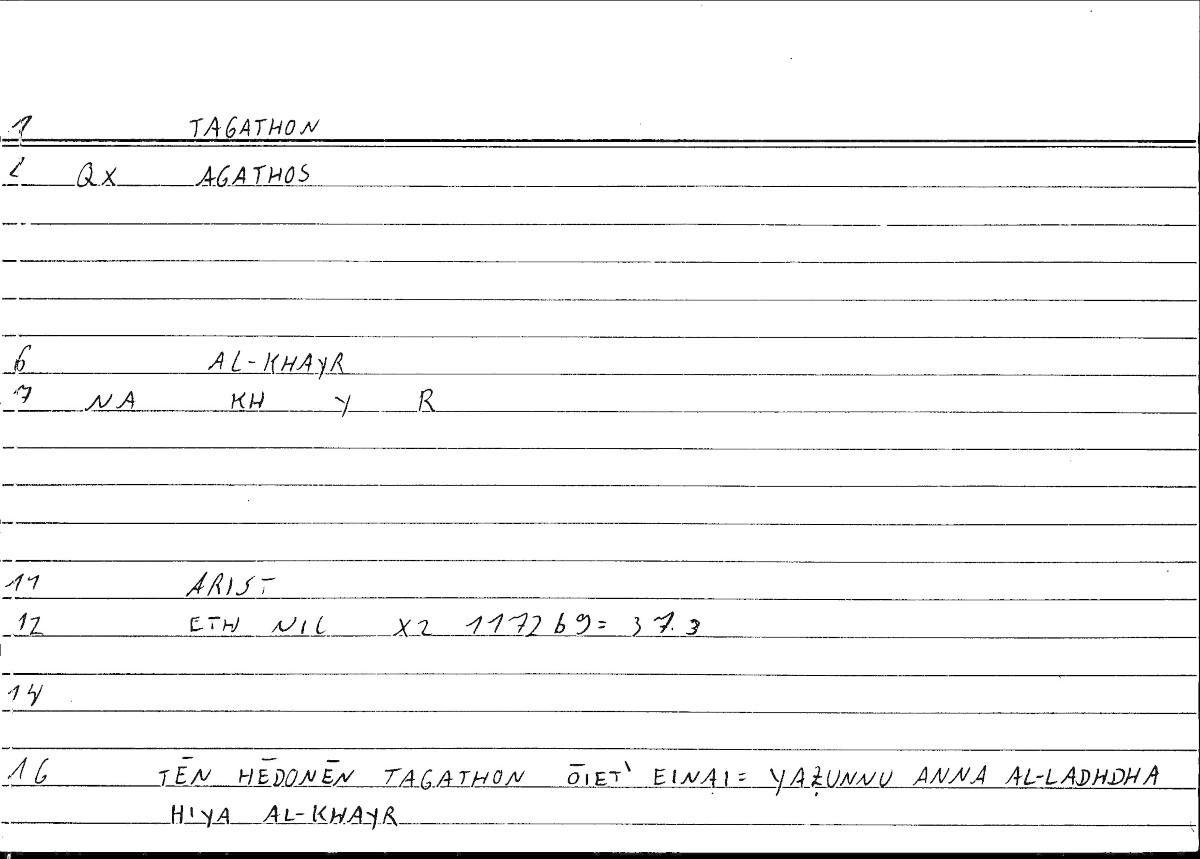 1 TAGATHON
2 QX AGATHOS
6 AL-KHAYR
7 NA KH Y R
11 ARIST
12 ETH NIC X2 1172 b9= 37.3
14
16 TĒN HĒDONĒN TAGATHON ŌIET' EINAI= YAẒUNNU ANNA AL-LADHDHA
HIYA AL-KHAYR